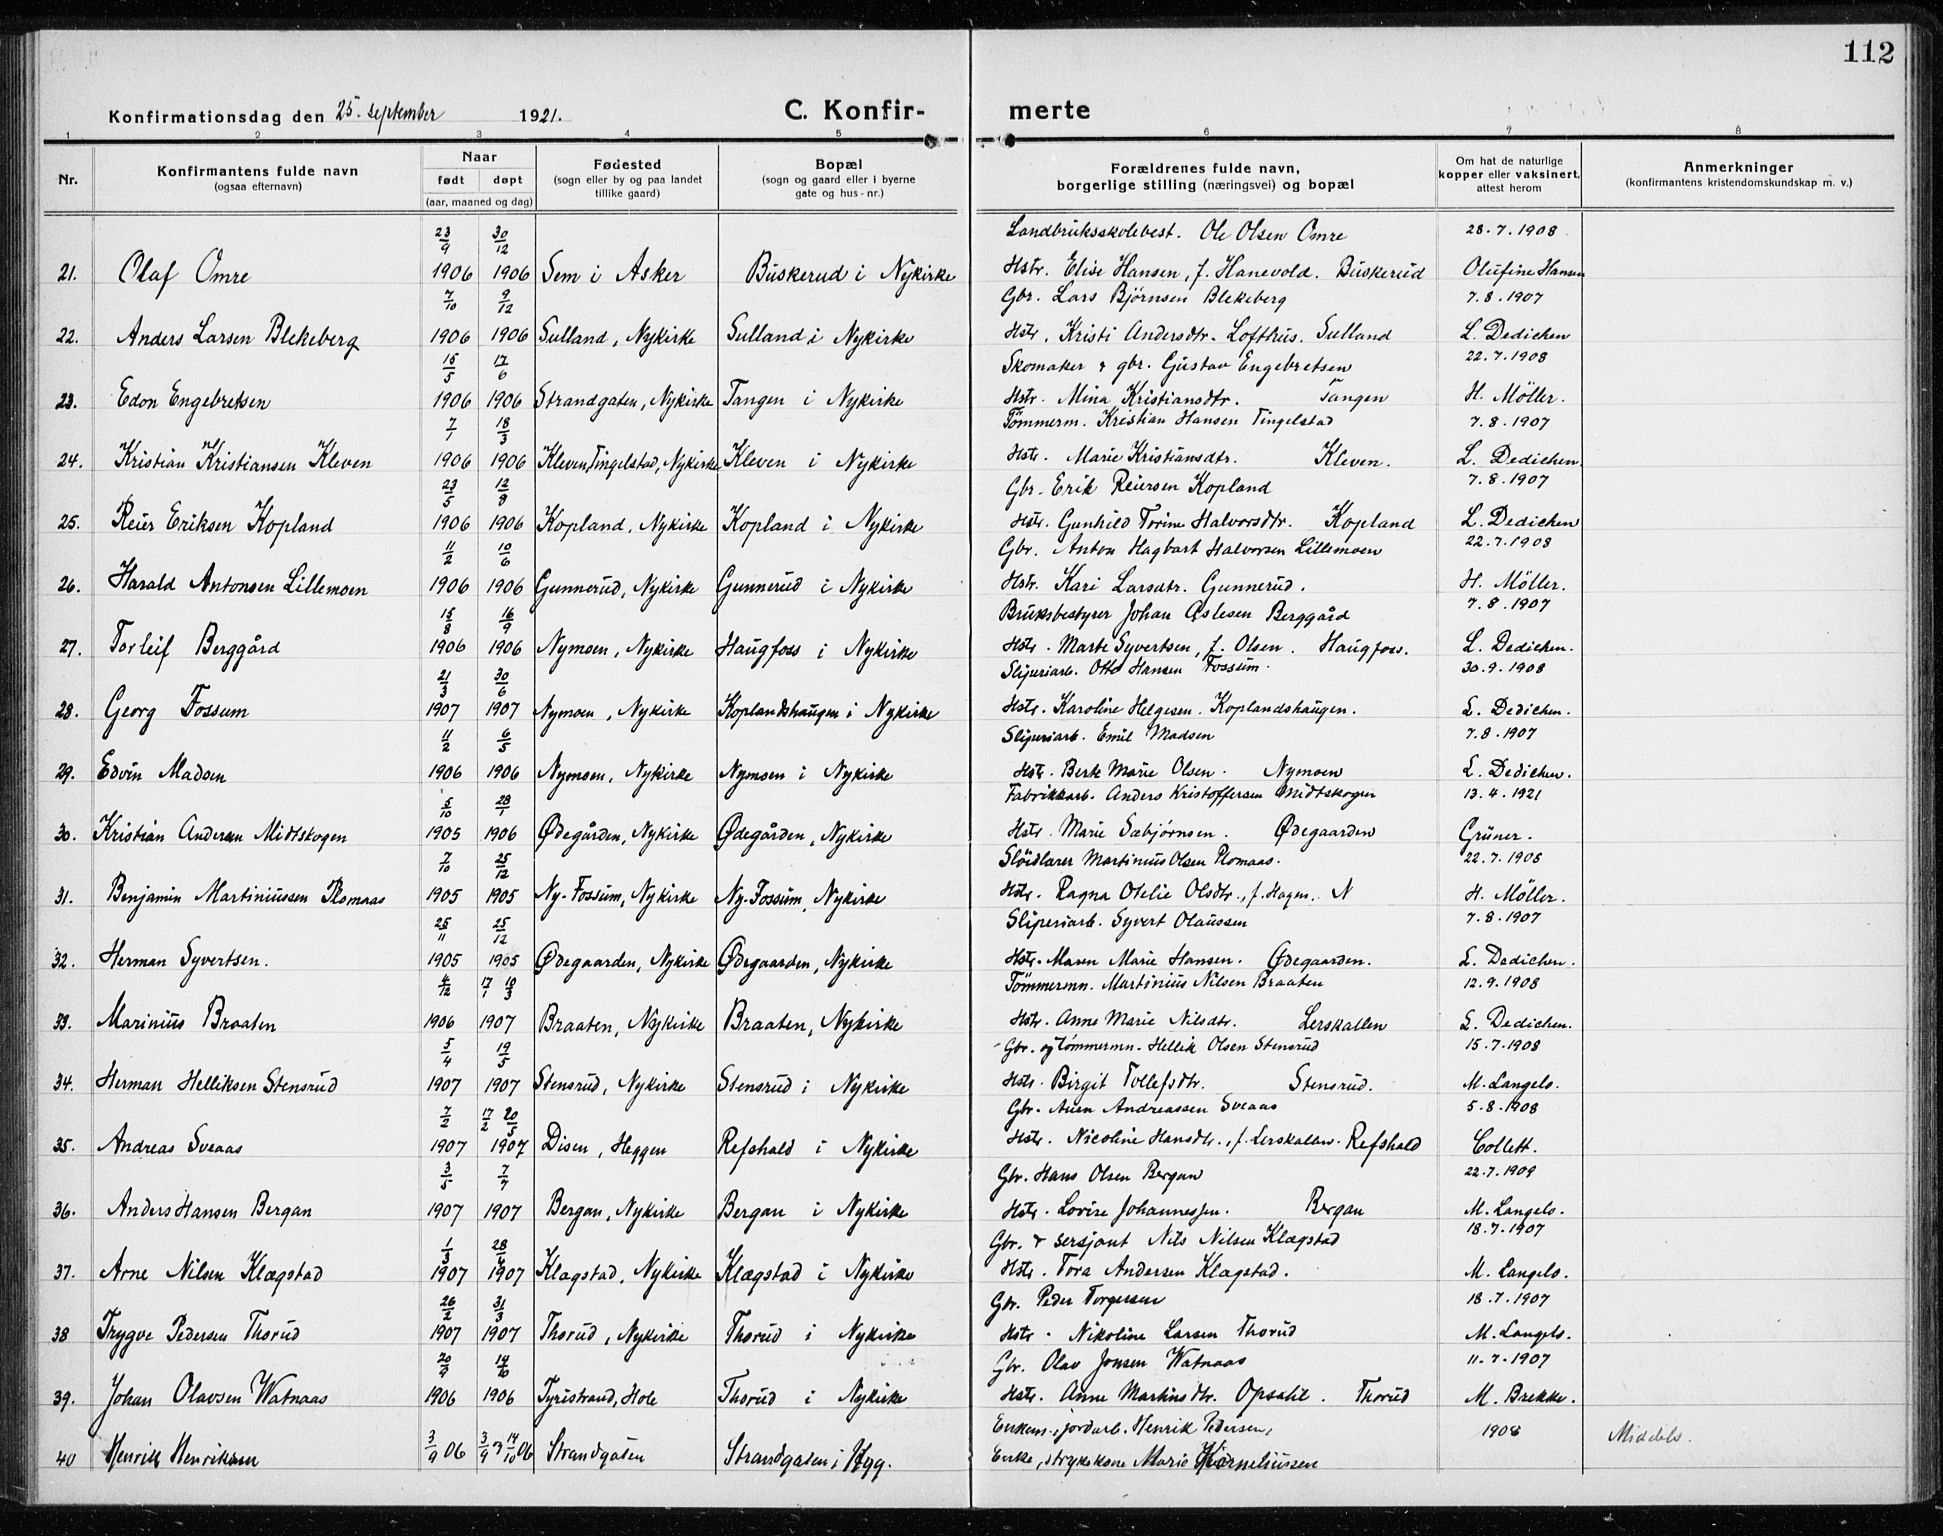 112
Konfirmationsdag den 25. september 1921. C. Konfir- merte
1 2 3 4 5 6 7 8
Nr.
Konfirmantens fulde navn
(ogsaa efternavn)
Naar
født døpt
(aar, maaned og dag)
Fødested
(sogn eller by og paa landet
tillike gaard)
Bopæl
(sogn og gaard eller i byerne
gate og hus-nr.)
Forældrenes fulde navn,
borgerlige stilling (næringsvei) og bopæl
Om hat de naturlige
kopper eller vaksinert,
attest herom
Anmerkninger
(konfirmantens kristendomskundskap m. v.)
23/9 30/12 Landbruksskolebest. Ole Olsen Omre 28.7.1908
21. Olaf Omre 1906 1906 Sem i Asker Buskerud i Nykirke Hstr. Elise Hansen, f. Hanevold. Buskerud Olufine Hansen
7/10 9/12 Gbr. Lars Bjørnsen Blekeberg 7.8.1907
22. Anders Larsen Blekeberg 1906 1906 Sulland, Nykirke Sulland i Nykirke Hstr. Kristi Andersdtr. Lofthus. Sulland L. Dedichen
15/5 17/6 Skomaker & gbr. Gustav Engebretsen 22.7.1908
23. Edon Engebretsen 1906 1906 Strandgaten, Nykirke Tangen i Nykirke Hstr. Mina Kristiansdtr. Tangen H. Möller.
7/1 18/3 Tømmerm. Kristian Hansen Tingelstad 7.8.1907
24. Kristian Kristiansen Kleven 1906 1906 Kleven, Tingelstad, Nykirke Kleven i Nykirke Hstr. Marie Kristiansdtr. Kleven. L. Dedichen.
23/5 12/8 Gbr. Erik Reiersen Kopland 7.8.1907
25. Reier Eriksen Kopland 1906 1906 Kopland, Nykirke Kopland i Nykirke Hstr. Gunhild Torine Halvorsdtr. Kopland L. Dedichen
11/2 10/6 Gbr. Anton Hagbart Halvorsen Lillemoen 22.7.1908
26. Harald Antonsen Lillemoen 1906 1906 Gunnerud, Nykirke Gunnerud i Nykirke Hstr. Kari Larsdtr. Gunnerud. H. Möller.
15/8 16/9 Bruksbestyrer Johan Aslesen Berggård 7.8.1907
27. Torleif Berggård 1906 1906 Nymoen, Nykirke Haugfoss i Nykirke Hstr. Marte Syvertsen, f. Olsen. Haugfoss. L. Dedichen.
21/3 30/6 Sliperiarb. Otto Hansen Fossum. 30.9.1908
28. Georg Fossum 1907 1907 Nymoen, Nykirke Koplandshaugen i Nykirke Hstr. Karoline Helgesen. Koplandshaugen. L. Dedichen.
11/2 6/5 Sliperiarb. Emil Madsen 7.8.1907
29. Edvin Madsen 1906 1906 Nymoen, Nykirke Nymoen i Nykirke Hstr. Berte Marie Olsen. Nymoen L. Dedichen.
5/10 28/1 Fabrikkarb. Anders Kristoffersen Midtskogen 13.4.1921
30. Kristian Andersen Midtskogen 1905 1906 Ødegården, Nykirke Ødegården, Nykirke Hstr. Marie Sæbjørnsen. Ødegaarden Grüner.
7/10 25/12 Slöidlærer Martinius Olsen Plomaas. 22.7.1908
31. Benjamin Martiniussen Plomaas 1905 1905 Ny-Fossum, Nykirke Ny-Fossum, Nykirke Hstr. Ragna Otelie Olsdtr., f. Hagen. N H. Möller.
25/11 25/12 Sliperiarb. Syvert Olaussen 7.8.1907
32. Herman Syvertsen. 1905 1905 Ødegaarden, Nykirke Ødegaarden, Nykirke Hstr. Maren Marie Hansen. Ødegaarden. L. Dedichen.
4/12 17/1 10/3 Tømmermn. Martinius Nilsen Braaten 12.9.1908
33. Marinius Braaten 1906 1907 Braaten, Nykirke Braaten, Nykirke Hstr. Anne Marie Nilsdtr. Lerskallen L. Dedichen.
5/4 19/5 Gbr. og tømmermn. Hellik Olsen Stensrud 15.7.1908
34. Herman Helliksen Stensrud 1907 1907 Stensrud, Nykirke Stensrud i Nykirke Hstr. Birgit Tollefsdtr. Stensrud. M. Langels.
7/2 17/2 20/5 Gbr. Auen Andreassen Sveaas 5.8.1908
35. Andreas Sveaas 1907 1907 Disen, Heggen Refshald i Nykirke Hstr. Nicoline Hansdtr., f. Lerskallen. Refshald Collett.
3/5 7/7 Gbr. Hans Olsen Bergan 22.7.1909
36. Anders Hansen Bergan 1907 1907 Bergan, Nykirke Bergan i Nykirke Hstr. Lovise Johannessen. Bergan M. Langels.
1/3 28/4 Gbr. & sersjant Nils Nilsen Klægstad 18.7.1907
37. Arne Nilsen Klægstad 1907 1907 Klægstad, Nykirke Klægstad i Nykirke Hstr. Tora Andersen Klægstad. M. Langels.
26/2 31/3 Gbr. Peder Torgersen 18.7.1907
38 Trygve Pedersen Thorud 1907 1907 Thorud, Nykirke Thorud i Nykirke Hstr. Nikoline Larsen Thorud M. Langels.
20/9 14/10 Gbr. Olav Jonsen Watnaas 11.7.1907
39. Johan Olavsen Watnaas 1906 1906 Tyristrand, Hole Thorud i Nykirke Hstr. Anne Martinsdtr. Opsahl. Thorud M. Brekke.
jordarb. Henrik Pedersen, 1908 Middels.
40 Henrik Henriksen 3/9 06 3/9 14/10 06 Strandgaten Strandgaten i Hgg. Enke, strykekone Marie Korneliussen